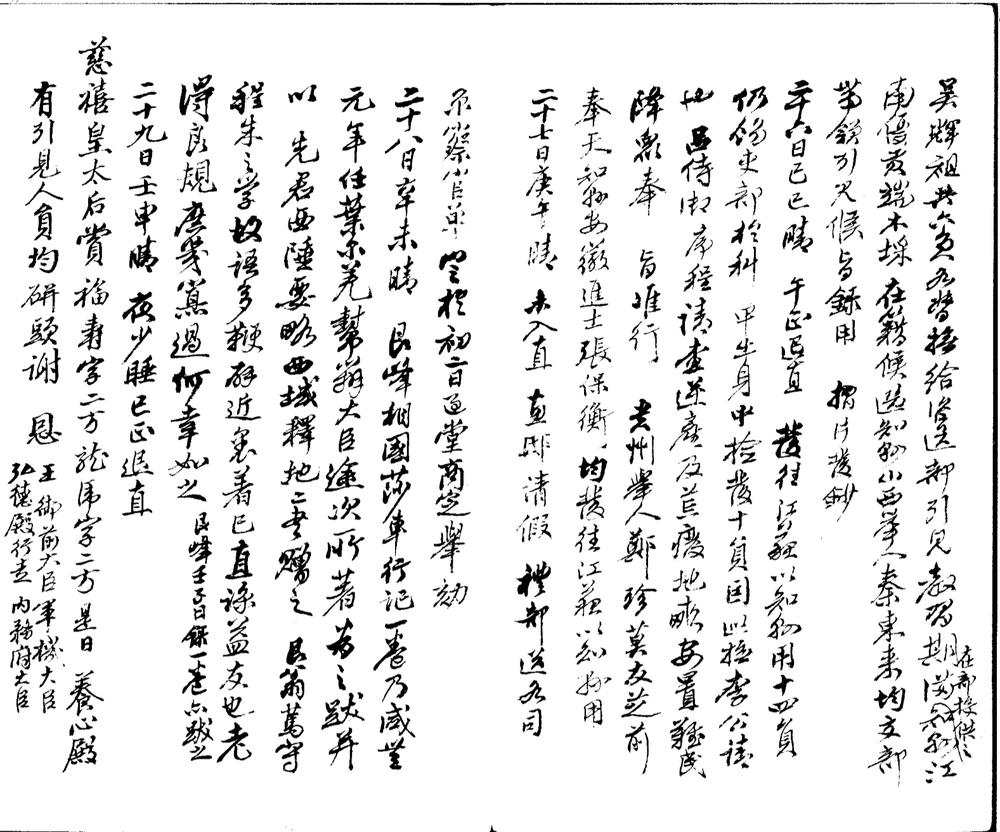 吳輝祖共六員名咨撫給咨送部引見教習期滿知縣江
在部投供
南優貢端木埰 在籍候選知縣山西舉人秦東來均交部
帶領引見候旨錄用 摺片發鈔
二十六日己巳晴 午正退直 發往江蘇以知縣用十四員
仍飭吏部於科甲出身中揀發十員因蘇撫李公請
也 呂侍御序程請查逆產及荒廢地畝安置難民
降眾奉 旨准行 貴州舉人鄭珍莫友芝前
奉天知縣安徽進士張保衡均發往江蘇以知縣用
二十七日庚午晴 未入直 直郎清假 禮部送各司
京察官單 定於初二日通堂商定舉劾
二十八日辛未晴 艮峰相國莎車行記一卷乃咸豐
元年任葉尔羌幫辦大臣途次所著 為之跋并
以 先君西陲要略西域釋地二書贈之 艮翁篤守
程朱之學故語多鞭辟近裏著己直諒益友也老
得良規庶幾寡過何幸如之 艮峰壬子日錄一卷亦跋之
二十九日壬申晴 夜少睡巳正退直
慈禧皇太后賞福壽字二方龍虎字二方 是日 養心殿
有引見人員均碰頭謝 恩 王御前大臣軍機大臣
弘德殿行走內務府大臣